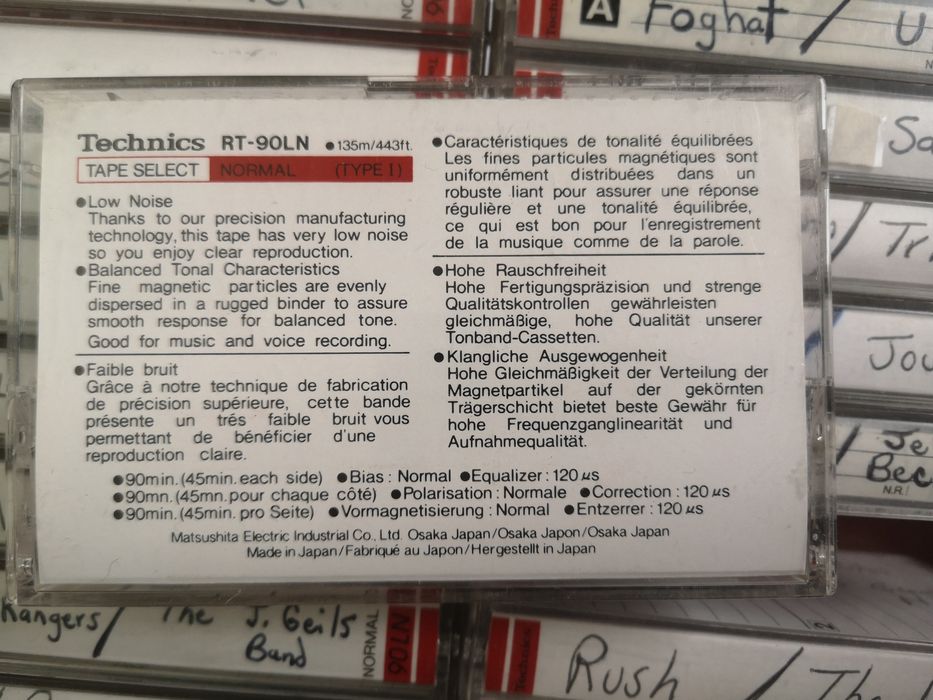 A Foghat / U
Technics RT-90LN ●135m/443ft.
TAPE SELECT NORMAL (TYPE I)
●Low Noise
Thanks to our precision manufacturing
technology, this tape has very low noise
so you enjoy clear reproduction.
●Balanced Tonal Characteristics
Fine magnetic particles are evenly
dispersed in a rugged binder to assure
smooth response for balanced tone.
Good for music and voice recording.
●Faible bruit
Grâce à notre technique de fabrication
de précision supérieure, cette bande
présente un trés faible bruit vous
permettant de bénéficier d'une
reproduction claire.
●Caractéristiques de tonalité équilibrées
Les fines particules magnétiques sont
uniformément distribuées dans un
robuste liant pour assurer une réponse
régulière et une tonalité équilibrée,
ce qui est bon pour l'enregistrement
de la musique comme de la parole.
●Hohe Rauschfreiheit
Hohe Fertigungspräzision und strenge
Qualitätskontrollen gewährleisten
gleichmäßige, hohe Qualität unserer
Tonband-Cassetten.
●Klangliche Ausgewogenheit
Hohe Gleichmäßigkeit der Verteilung der
Magnetpartikel auf der gekörnten
Trägerschicht bietet beste Gewähr für
hohe Frequenzganglinearität und
Aufnahmequalität.
●90min.(45min.each side) ●Bias : Normal ●Equalizer : 120 µs
●90mn.(45mn.pour chaque côté) ●Polarisation : Normale ●Correction : 120 µs
●90min.(45min. pro Seite) ●Vormagnetisierung : Normal ●Entzerrer : 120 µs
Matsushita Electric Industrial Co., Ltd. Osaka Japan/Osaka Japon/Osaka Japan
Made in Japan/Fabriqué au Japon/Hergestellt in Japan
N.R./
Rangers/ The J. Geils
Band
NORMAL
90LN
Technics
Rush / The